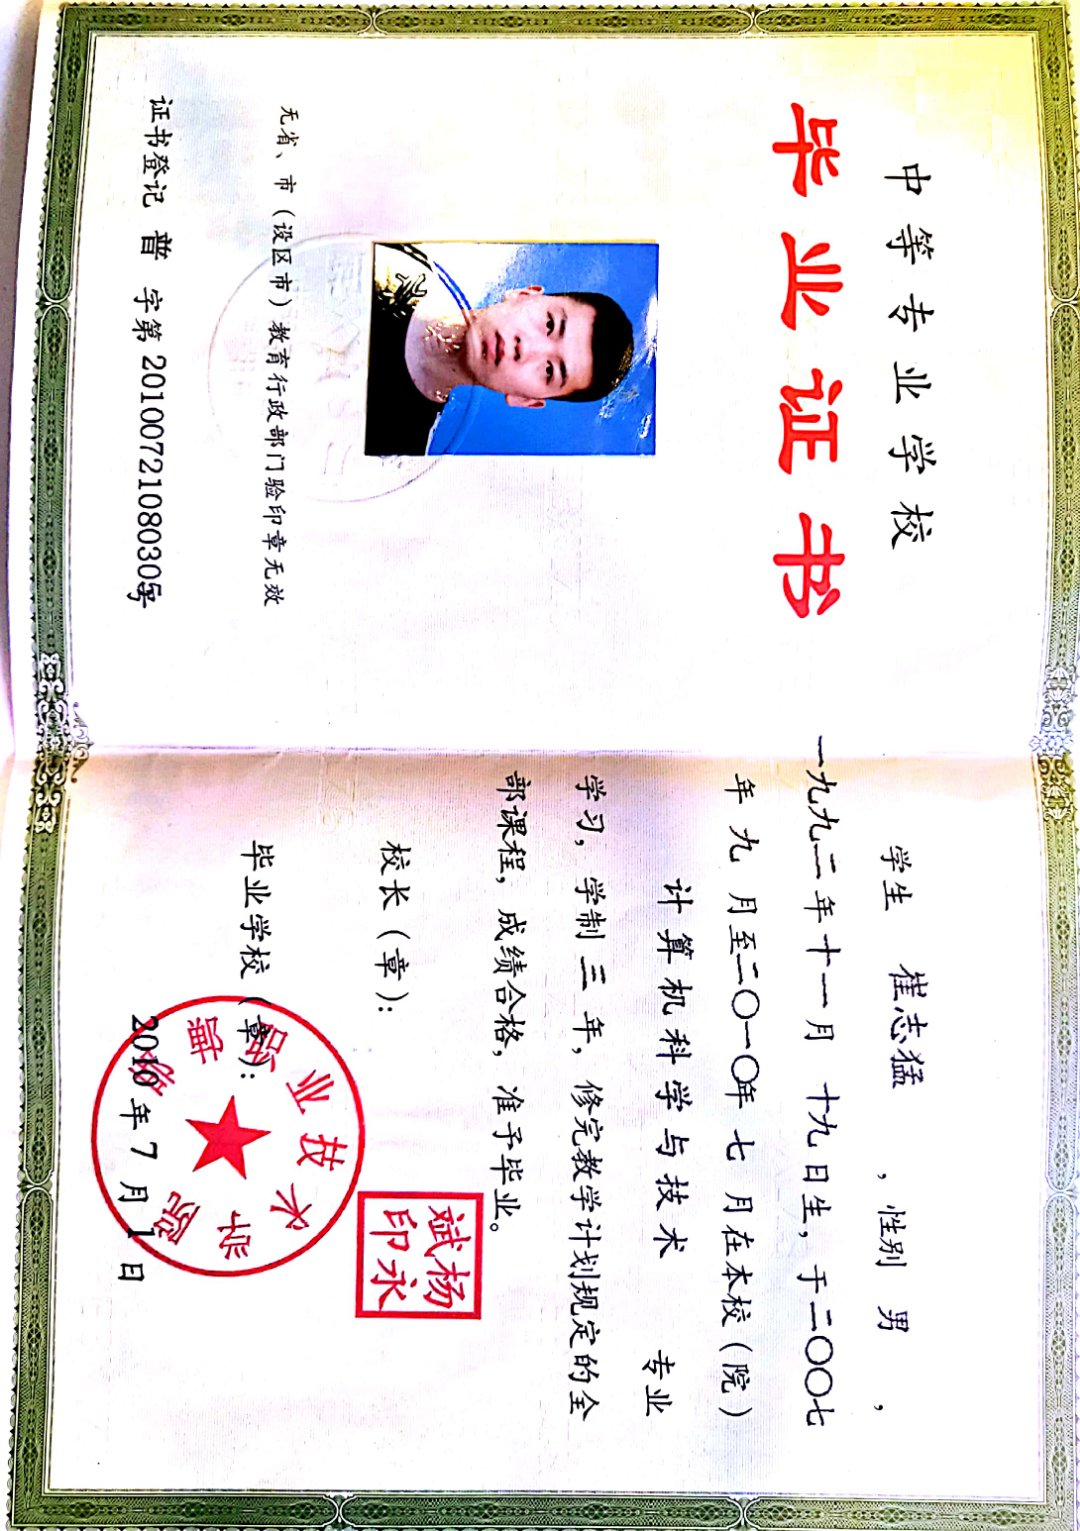 中等专业学校
毕业证书
无省、市（设区市）教育行政部门验印章无效
证书登记 普 字第2010072108030号
学生 崔志猛 ，性别 男 ，
一九九二年十一月 十九日生，于二〇〇七
年 九 月至二〇一〇年 七 月在本校（院）
计算机科学与技术 专业
学习，学制 三 年，修完教学计划规定的全
部课程，成绩合格，准予毕业。
校长（章）：
杨永斌印
毕业学校（章）：
职业技术学院
2010 年 7 月 1 日